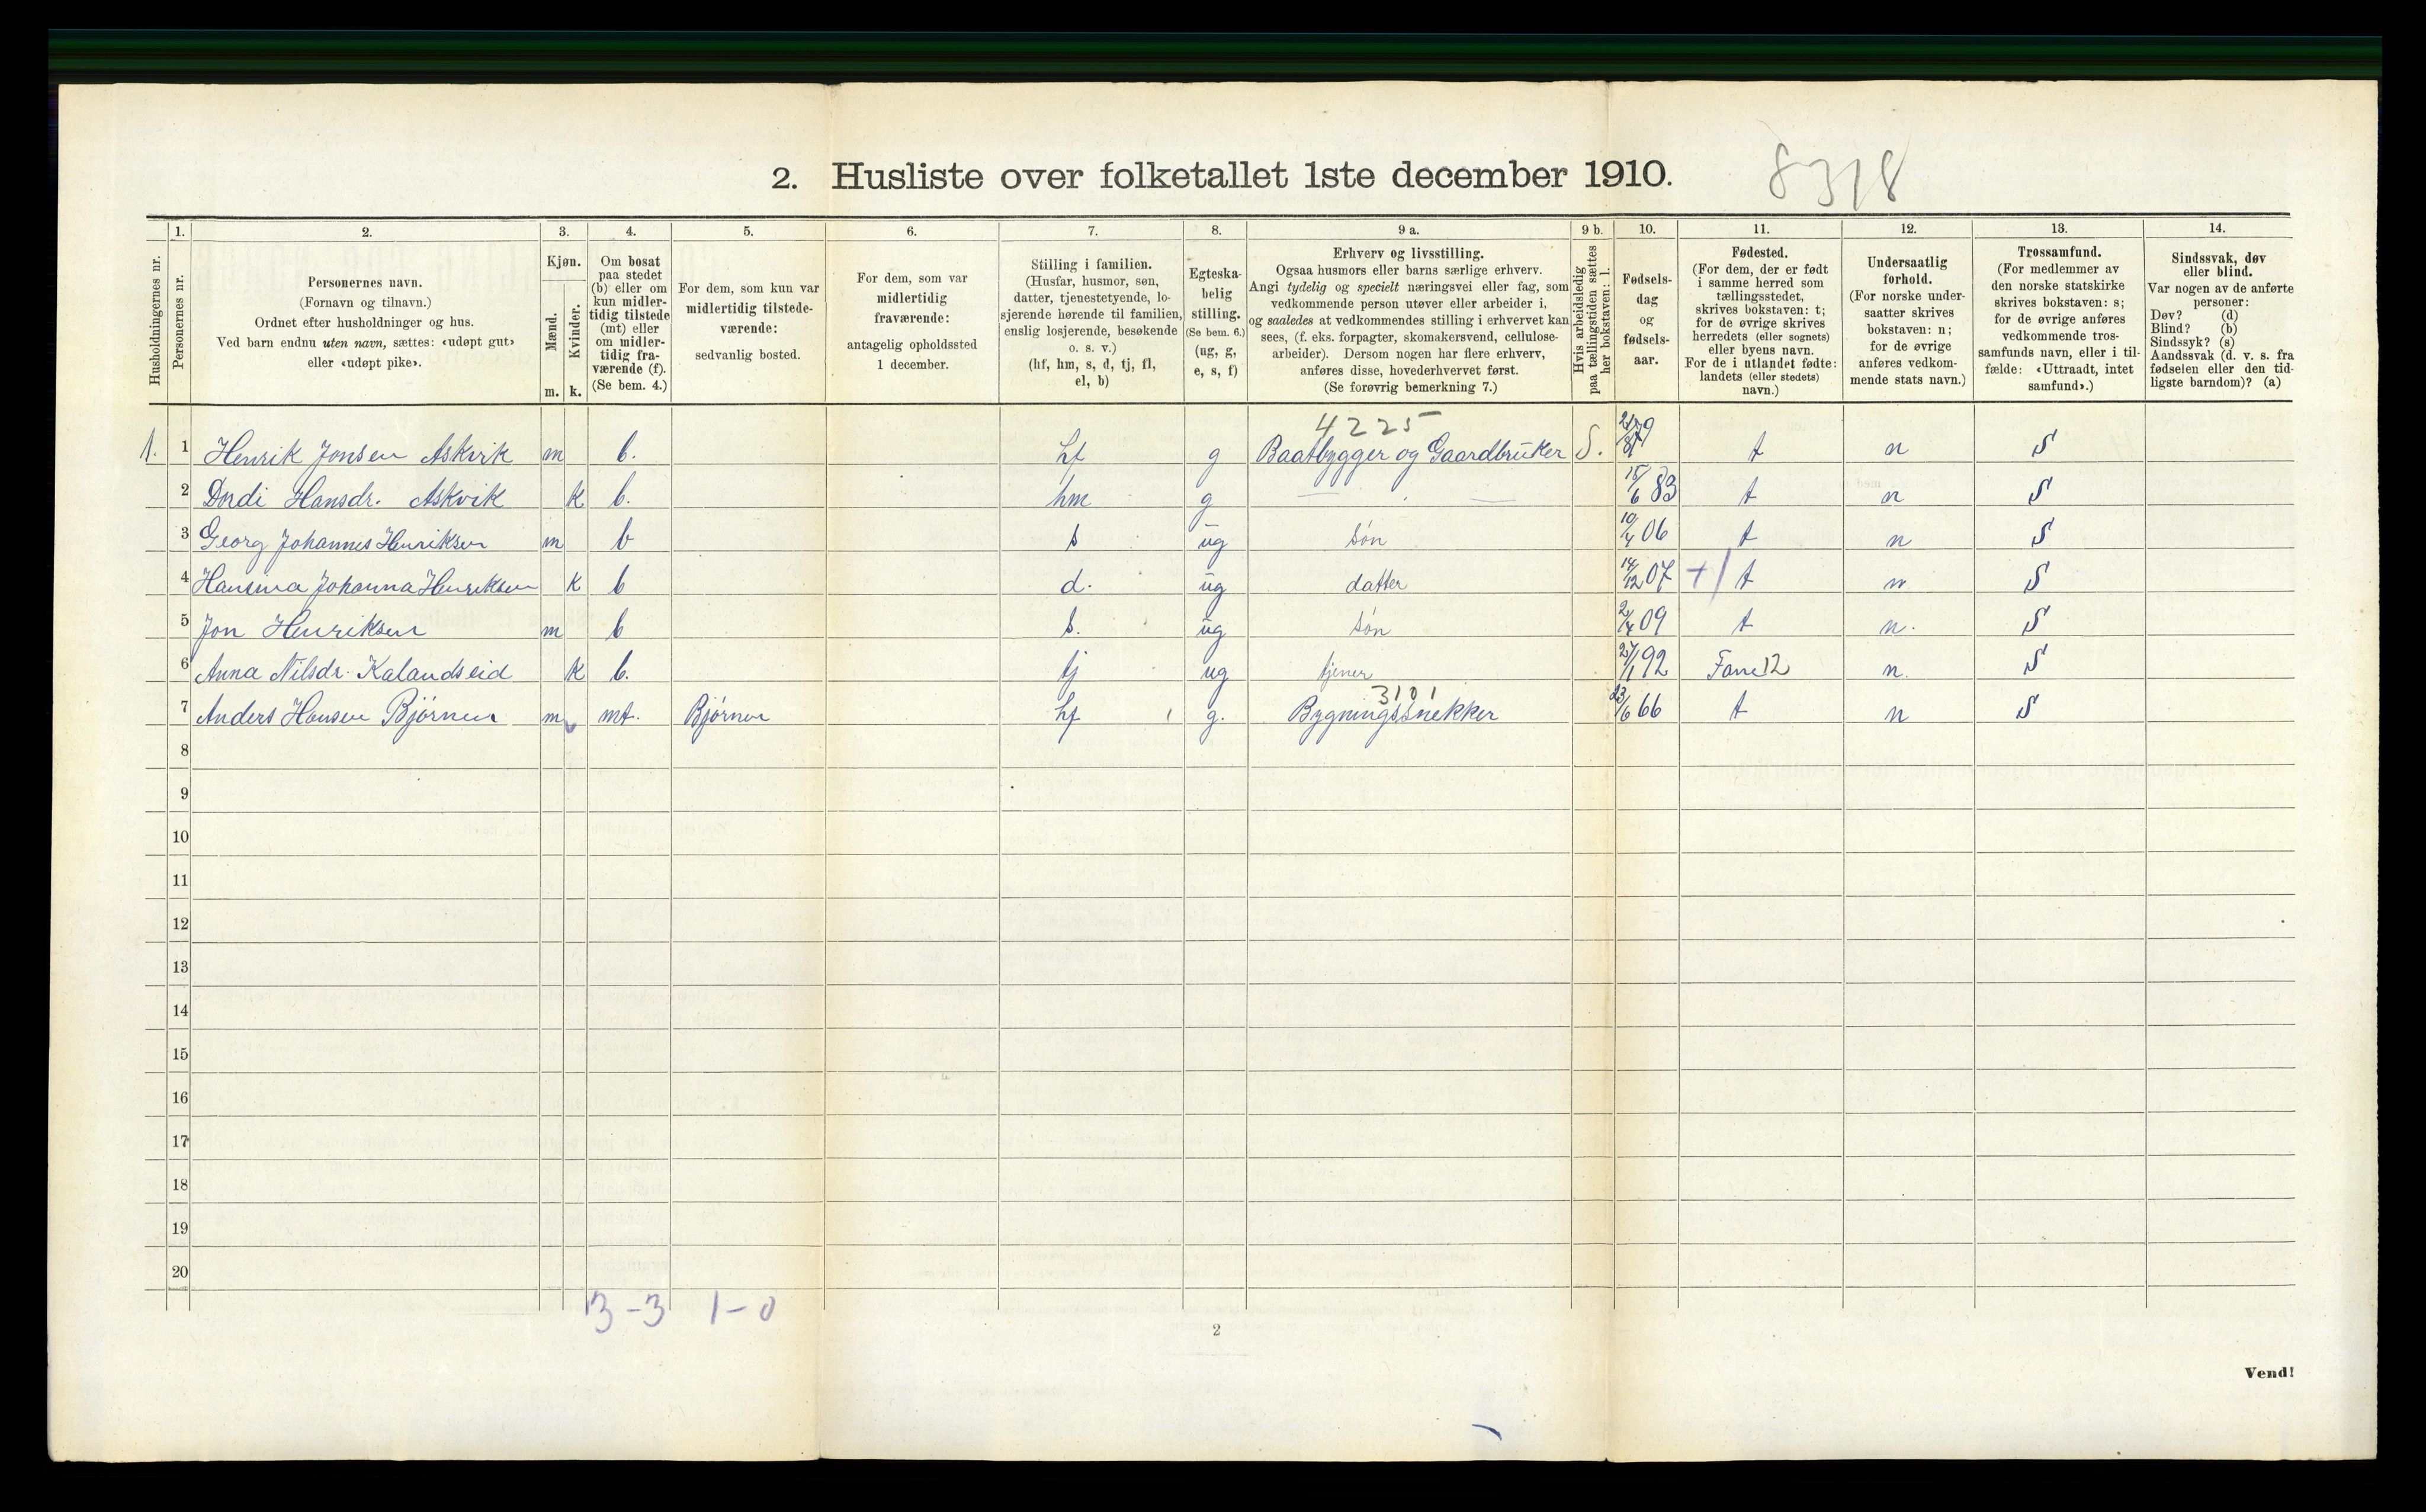 2. Husliste over folketallet 1ste december 1910.
8318
Husholdningernes nr.
1.
Personernes nr.
2.
Personernes navn.
(Fornavn og tilnavn.)
Ordnet efter husholdninger og hus.
Ved barn endnu uten navn, sættes: «udøpt gut»
eller «udøpt pike».
3.
Kjøn.
Mænd.
m.
Kvinder.
k.
4.
Om bosat
paa stedet
(b) eller om
kun midler-
tidig tilstede
(mt) eller
om midler-
tidig fra-
værende (f).
(Se bem. 4.)
5.
For dem, som kun var
midlertidig tilstede-
værende:
sedvanlig bosted.
6.
For dem, som var
midlertidig
fraværende:
antagelig opholdssted
1 december.
7.
Stilling i familien.
(Husfar, husmor, søn,
datter, tjenestetyende, lo-
sjerende hørende til familien,
enslig losjerende, besøkende
o. s. v.)
(hf, hm, s, d, tj, fl,
el, b)
8.
Egteska-
belig
stilling.
(Se bem. 6.)
(ug, g,
e, s, f)
9 a.
Erhverv og livsstilling.
Ogsaa husmors eller barns særlige erhverv.
Angi tydelig og specielt næringsvei eller fag, som
vedkommende person utøver eller arbeider i,
og saaledes at vedkommendes stilling i erhvervet kan
sees, (f. eks. forpagter, skomakersvend, cellulose-
arbeider). Dersom nogen har flere erhverv,
anføres disse, hovederhvervet først.
(Se forøvrig bemerkning 7.)
9 b.
Hvis arbeidsledig
paa tællingstiden sættes
her bokstaven: l.
10.
Fødsels-
dag
og
fødsels-
aar.
11.
Fødested.
(For dem, der er født
i samme herred som
tællingsstedet,
skrives bokstaven: t;
for de øvrige skrives
herredets (eller sognets)
eller byens navn.
For de i utlandet fødte:
landets (eller stedets)
navn.)
12.
Undersaatlig
forhold.
(For norske under-
saatter skrives
bokstaven: n;
for de øvrige
anføres vedkom-
mende stats navn.)
13.
Trossamfund.
(For medlemmer av
den norske statskirke
skrives bokstaven: s;
for de øvrige anføres
vedkommende tros-
samfunds navn, eller i til-
fælde: «Uttraadt, intet
samfund».)
14.
Sindssvak, døv
eller blind.
Var nogen av de anførte
personer:
Døv? (d)
Blind? (b)
Sindssyk? (s)
Aandssvak (d. v. s. fra
fødselen eller den tid-
ligste barndom)? (a)
4225
1. 1 Henrik Jonsen Askvik m b. hf g Baatbygger og Gaardbruker S. t n S
2 Dordi Hansdr. Askvik k b. hm g 15/6 83 t n S
3 Georg Johannes Henriksen m b s ug søn 10/4 06 t n S
4 Hansina Johanna Henriksen k b d. ug datter 14/12 07 + t n S
5 Jon Henriksen m b s. ug søn 2/4 09 t n. S
6 Anna Nilsdr. Kalandseid k b. tj ug tjener 27/1 92 Fane 12 n. S
3101
7 Anders Hansen Bjørnen m mt. Bjørnen hf g. Bygningssnekker 23/6 66 t n S
8
9
10
11
12
13
14
15
16
17
18
19
20
3-3 1-0
2
Vend!